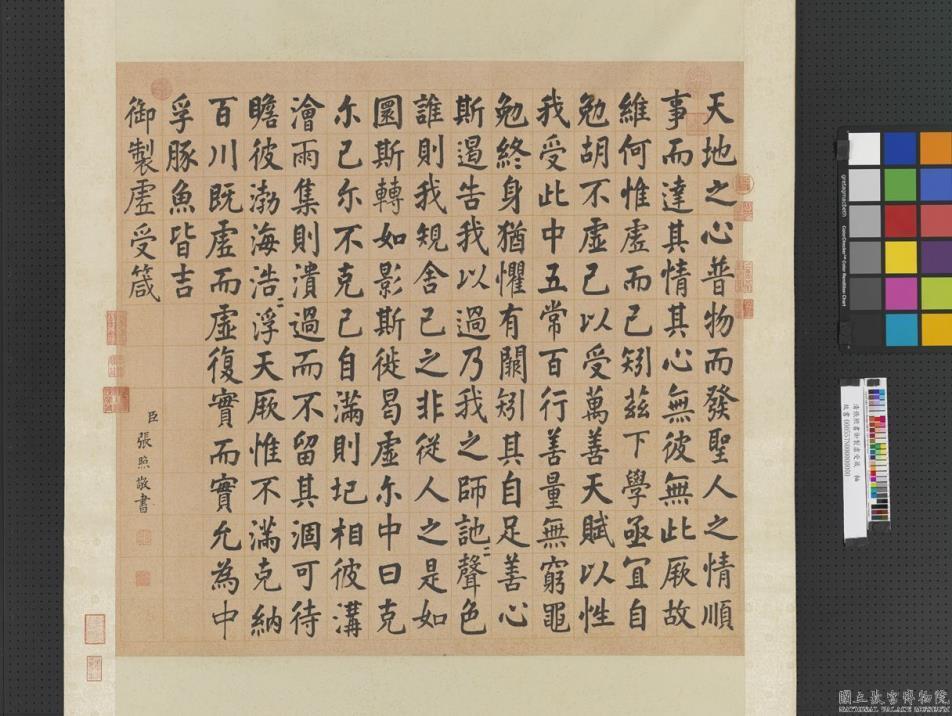 天地之心普物而發聖人之情順
事而達其情其心無彼無此厥故
維何惟虛而已矧茲下學亟宜自
勉胡不虛己以受萬善天賦以性
我受此中五常百行善量無窮黽
勉終身猶懼有闕矧其自足善心
斯遏告我以過乃我之師訑〻聲色
誰則我規舍己之非從人之是如
圜斯轉如影斯徙曷虛尔中曰克
尔己尔不克己自滿則圮相彼溝
澮雨集則潰過而不留其涸可待
瞻彼渤海浩〻浮天厥惟不滿克納
百川既虛而盅虛復實而實允為中
孚豚魚皆吉
御製虛受箴
臣張照敬書
gretagmacbeth
ColorChecker Color Rendition Chart
國立故宮博物院
NATIONAL PALACE MUSEUM